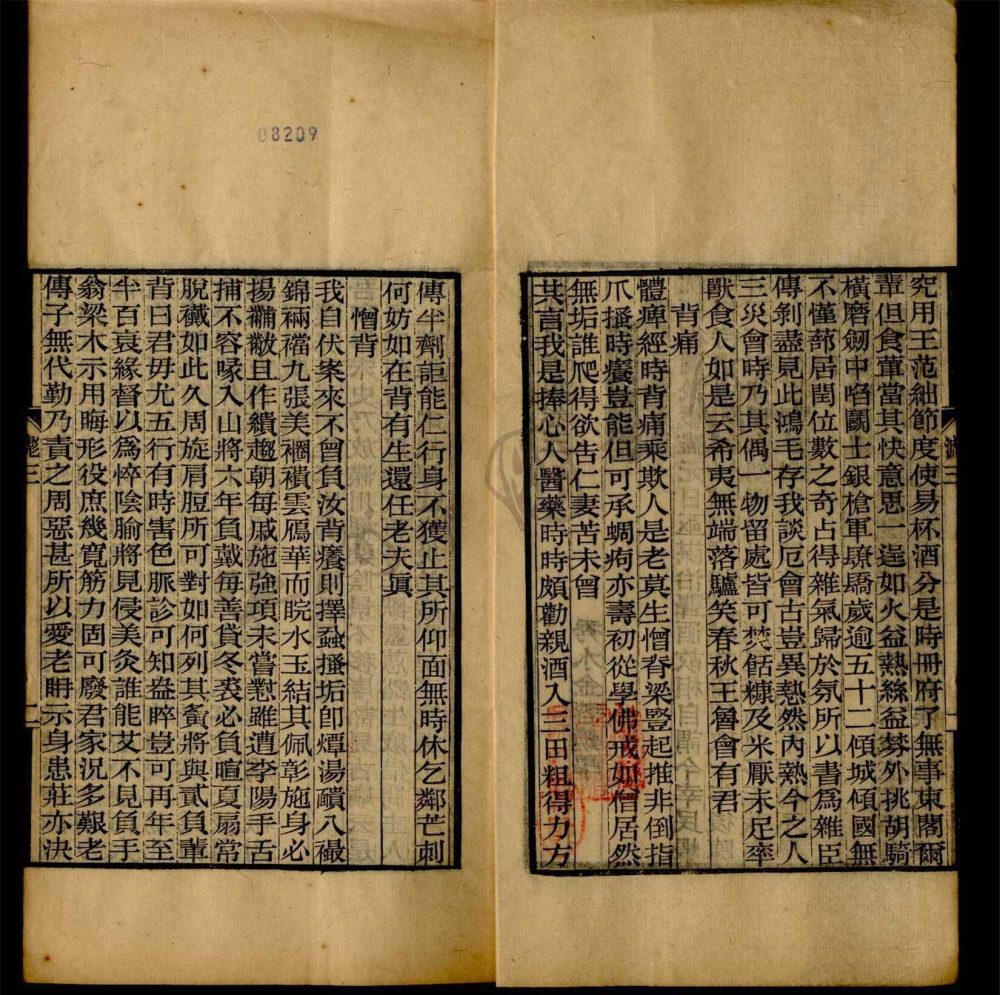 究用王范絀節度使易杯酒分是時冊府了無事東閣爾
輩但食葷當其快意思一逞如火益熱絲益棼外挑胡騎
橫磨劒中啗鬬士銀槍軍驕歲逾五十二傾城傾國無
不僅蔀居閏位數之奇占得雜氣歸於氛所以書爲雜臣
傳剝盡見此鴻毛存我談厄會古豈異熱然內熱今之人
三災會時乃其偶一物留處皆可焚餂糠及米厭未足率
獸食人如是云希夷無端落驢笑春秋王魯會有君
背痛
體痺經時背痛乘欺人是老莫生憎脊梁豎起推非倒指
爪搔時癢豈能但可承蜩痀亦壽初從學佛戒如僧居然
無垢誰爬得欲告仁妻苦未曾
其言我是捧心人醫藥時時頗勸親酒入三田粗得力方
傳半劑詎能仁行身不獲止其所仰面無時休乞鄰芒刺
何妨如在背有生還任老夫眞
憎背
我自伏案來不曾負汝背癢則擇蝨搔垢卽燂湯靧八襊
錦裲襠九張美襉襀雲鴈華而睆水玉結其佩彰施身必
揚黼黻且作纘趨朝每戚施強項未嘗懟雖遭李陽手舌
捕不容喙入山將六年負戴每善貸冬裘必負暄夏扇常
脫襶如此久周旋肩脰所可對如何列其夤將與貳負輩
背曰君毋尤五行有時害色脈診可知盎睟豈可再年至
半百衰緣督以爲悴陰腧將見侵美灸誰能艾不見負手
翁梁木示用晦形役庶幾寬筋力固可廢君家況多艱老
傳子無代勤乃責之周惡甚所以愛老聃示身患莊亦決
三
08209